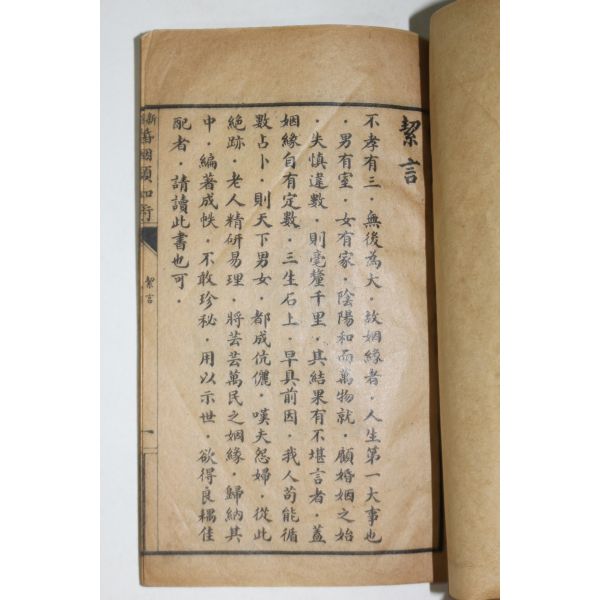 絜言
不孝有三．無後為大．故姻緣者．人生第一大事也
．男有室．女有家．陰陽和而萬物就．顧婚姻之始
．失慎違數．則毫釐千里．其結果有不堪言者．蓋
姻緣自有定數．三生石上．早具前因．我人苟能循
數占卜．則天下男女．都成伉儷．嘆夫怨婦．從此
絕跡．老人精研易理．將芸芸萬民之姻緣．歸納其
中．編著成帙．不敢珍秘．用以示世．欲得良耦佳
配者．請讀此書也可．
婚姻預知術
絜言
一